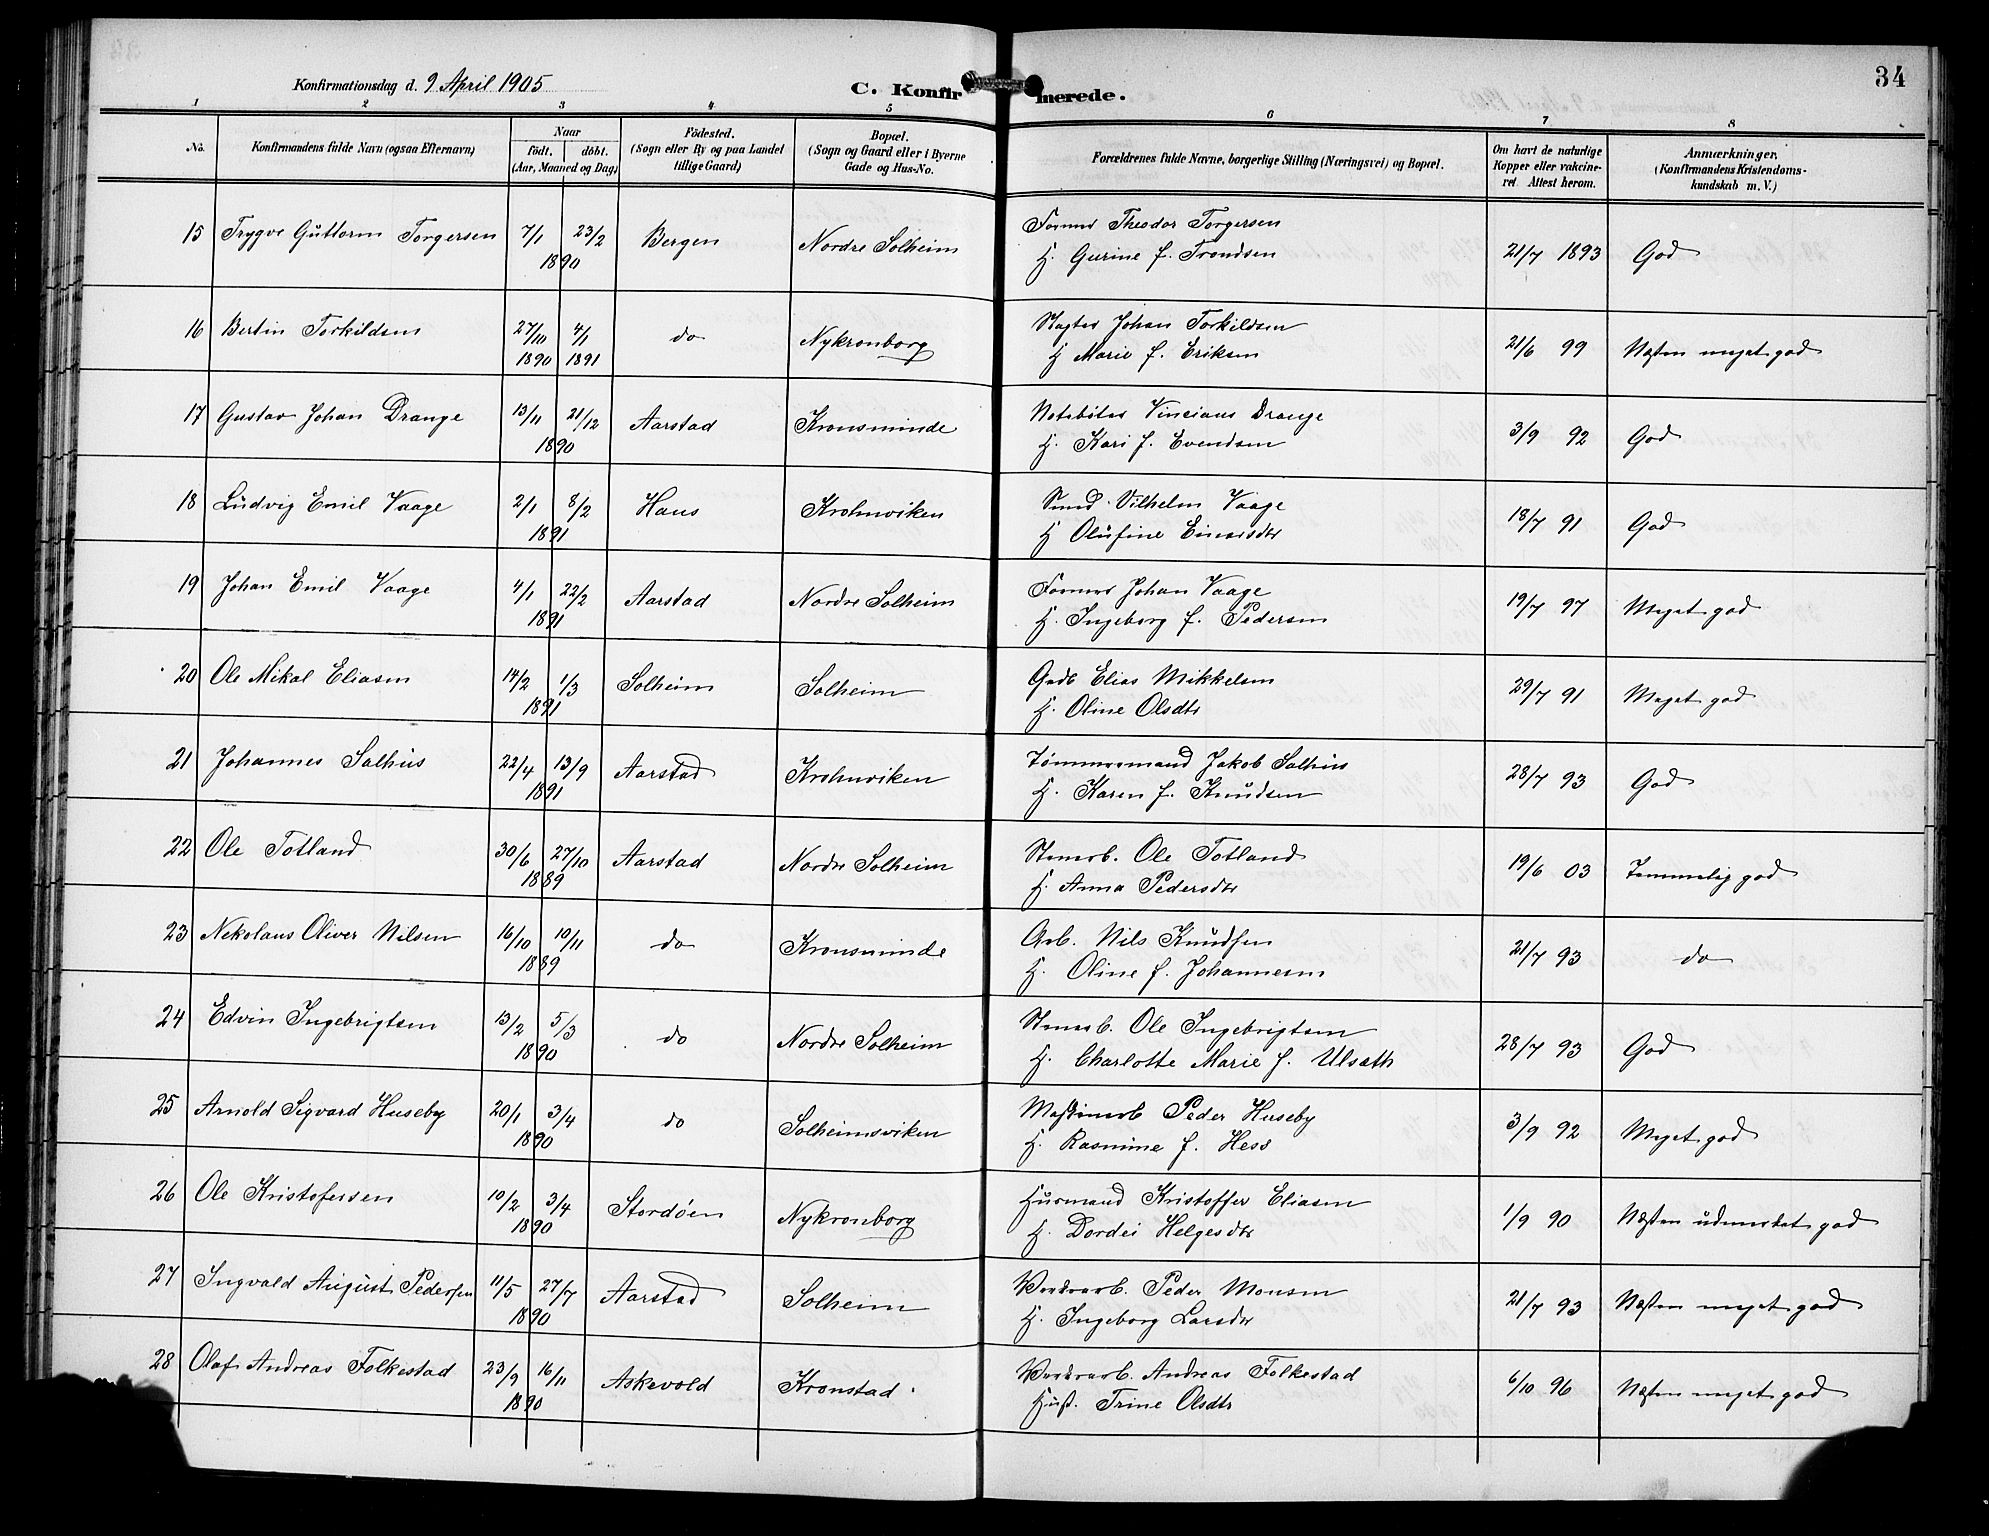 34
Konfirmationsdag d. 9 April 1905
C. Konfir merede.
1 2 3 4 5 6 7 8
No. Konfirmandens fulde Navn (ogsaa Efternavn) Naar født. døbt. (Aar, Maaned og Dag) Födested. (Sogn eller By og paa Landet tillige Gaard) Bopæl. (Sogn og Gaard eller i Byerne Gade og Hus-No. Forældrenes fulde Navne, borgerlige Stilling (Næringsvei) og Bopæl. Om havt de naturlige Kopper eller vakcineret Attest herom. Anmærkninger, (Konfirmandens Kristendomskundskab m. V.)
15 Trygve Guttorm Torgersen 7/1 23/2 1890 Bergen Nordre Solheim Former Theodor Torgersen
H. Gurine f. Trondsen 21/7 1893 God
16 Bertin Torkildsen 27/10 1890 4/1 1891 do Nykronborg Slagter Johan Torkildsen
H Marie f. Eriksen 21/6 99 Næsten meget god
17 Gustav Johan Drange 13/11 21/12 1890 Aarstad Kronsminde Notebøter Vinciaus Drange
H. Kari f. Evendsen 3/9 92 God
18 Ludvig Emil Vaage 2/1 8/2 1891 Haus Krohnviken Smed Vilhelm Vaage
H Olufine Einarsdtr 18/7 91 God
19 Johan Emil Vaage 4/1 22/2 1891 Aarstad Nordre Solheim Former Johan Vaage
H. Ingeborg f. Pedersen 19/7 97 Meget god
20 Ole Mikal Eliasen 14/2 1/3 1891 Solheim Solheim Gadb Elias Mikkelsen
H. Oline Olsdtr 29/7 91 Meget god
21 Johannes Salhus 22/4 13/9 1891 Aarstad Krohnviken Tømmermand Jakob Salhus
H. Karen f. Knudsen 28/7 93 God
22 Ole Totland 30/6 27/10 1889 Aarstad Nordre Solheim Stenarb. Ole Totland
H. Anna Pedersdtr 19/6 03 Temmelig god
23 Nekolaus Oliver Nilsen 16/10 10/11 1889 do Kronsminde Arb. Nils Knudsen
H. Oline f. Johannesen 21/7 93 do
24 Edvin Ingebrigtsen 13/2 5/3 1890 do Nordre Solheim Stenarb. Ole Ingebrigtsen
H. Charlotte Marie f. Ulsath 28/7 93 God
25 Arnold Sigvard Huseby 20/1 3/4 1890 do Solheimsviken Maskinarb Peder Huseby
H. Rasmine f. Hess 3/9 92 Meget god
26 Ole Kristofersen 10/2 3/4 1890 Stordøen Nykronborg Husmand Kristoffer Eliasen
H. Dordei Helgesdtr 1/9 90 Næsten udmerket god
27 Ingvald August Pedersen 11/5 27/7 1890 Aarstad Solheim Verkarb. Peder Monsen
H. Ingeborg Larsdtr 21/7 93 Næsten meget god
28 Olaf Andreas Folkestad 23/9 16/11 1890 Askevold Kronstad Verkarb. Andreas Folkestad
Hust. Trine Olsdtr 6/10 96 Næsten meget god